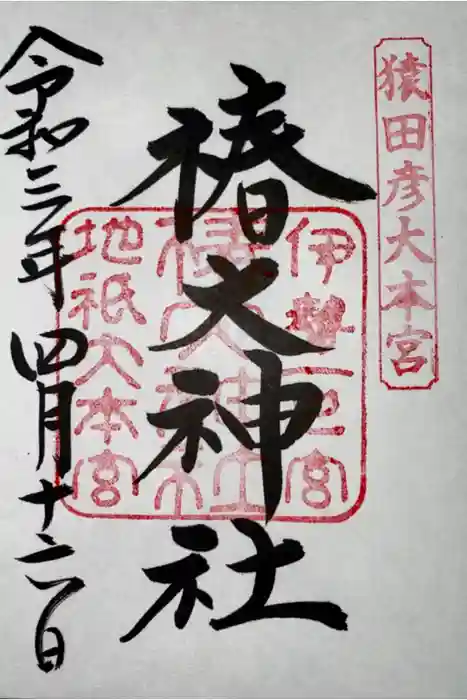 猿田彦大本宮
椿大神社
伊勢一之宮
椿大神社
地祇大本宮
令和三年四月十六日